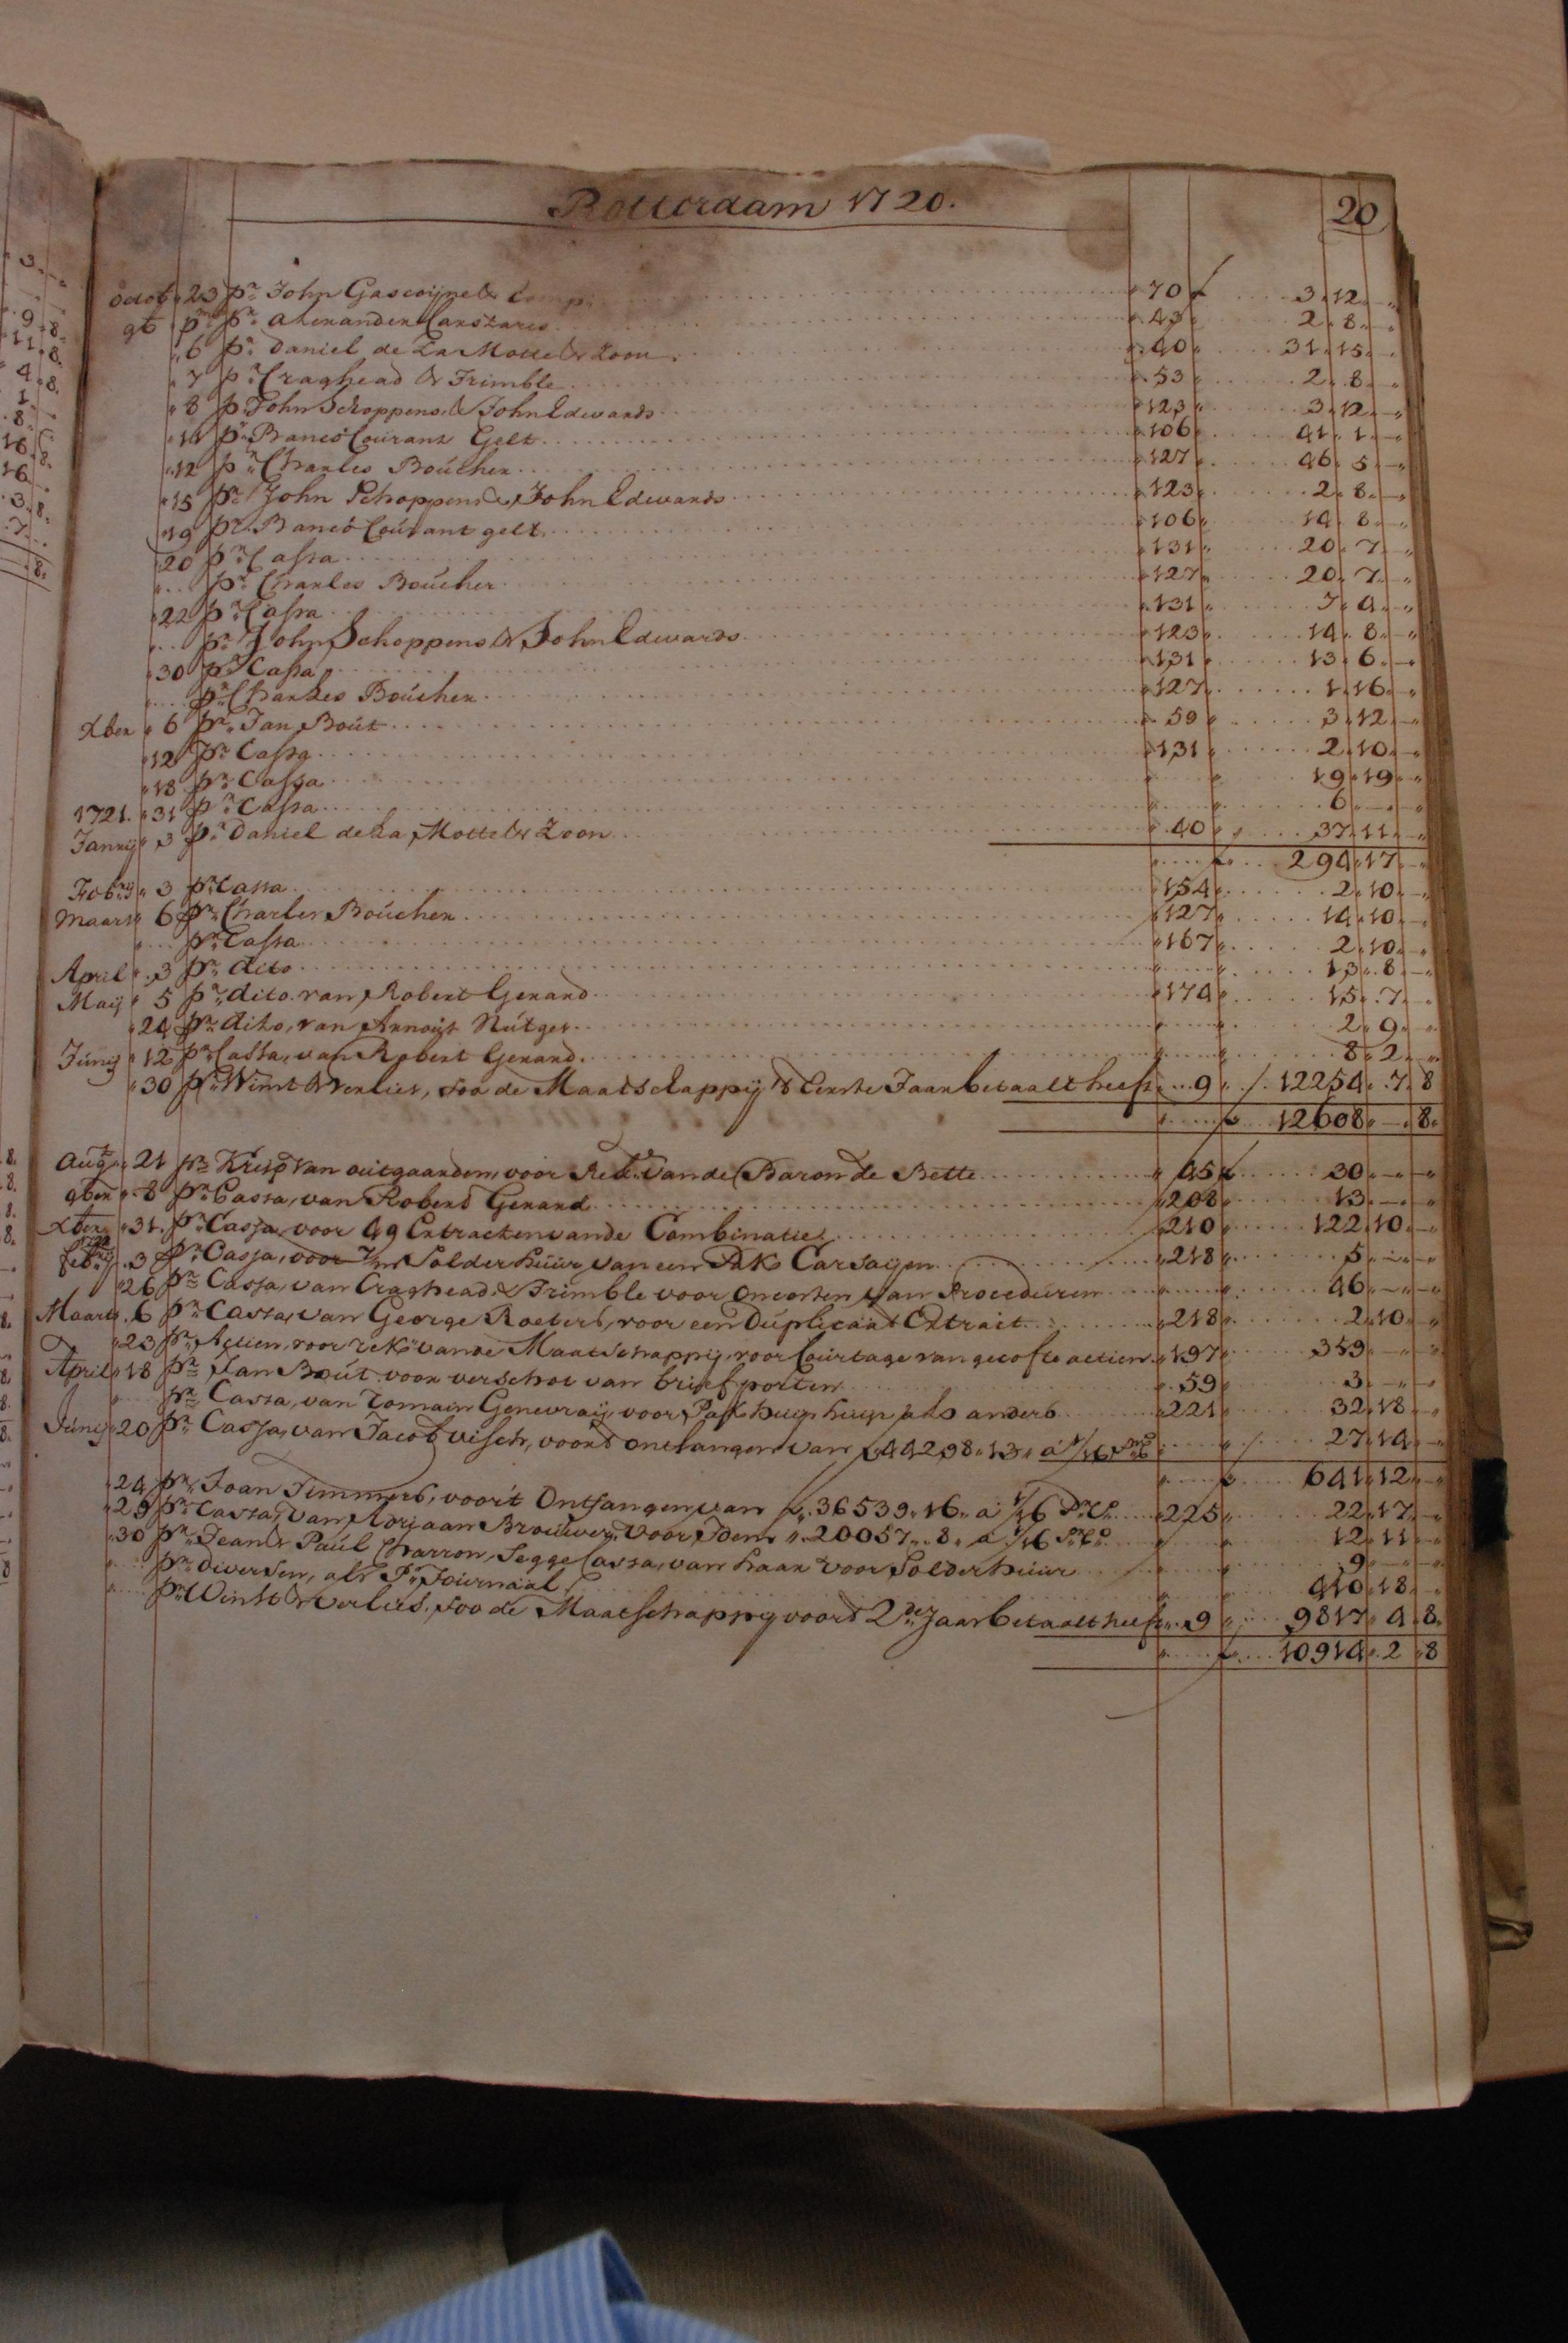 Rotterdam 1720. 20
Octob 23 pr. John Gascoijne & Comp. 70 f 3 12 —
9b pmo pr. Alexander Carstares 43 2 8 —
6 pr. Daniel de La Motte & Zoon 40 31 15 —
7 pr. Craghead & Trimble 53 2 8 —
8 pr. John Schoppens & John Edwards 123 3 12 —
11 pr. Banco Courant Gelt 106 41 1 —
12 pr. Charles Boucher 127 46 5 —
15 pr. John Schoppens & John Edwards 123 2 8 —
19 pr. Banco Courant gelt 106 14 8 —
20 pr. Cassa 131 20 7 —
pr. Charles Boucher 127 20 7 —
22 pr. Cassa 131 4 —
pr. John Schoppens & John Edwards 123 14 8 —
30 pr. Cassa 131 13 6 —
pr. Charles Boucher 127 1 16 —
Xber 6 pr. Jan Bout 59 3 12 —
12 pr. Cassa 131 2 10 —
18 pr. Cassa 19 19 —
1721. 31 pr. Cassa 6 — —
Jannij 3 pr. Daniel de La Motte & Zoon 40 37 11 —
f 294 17 —
Febrij 3 pr. Cassa 154 2 10 —
Maart 6 pr. Charles Boucher 127 14 10 —
pr. Cassa 167 2 10 —
April 3 pr. dito 13 8 —
Maij 5 pr. dito van Robert Gerard 174 15 7 —
24 pr. dito, van Arnout Rutges 2 9 —
Junij 12 pr. Cassa, van Robert Gerard 8 2 —
30 pr. Winst & Verlies, soo de Maatschappij 't Eerste Jaar betaalt heeft 9 12254 7 8
f 12608 — 8
Augt 21 pr. van uitgaanden, voor Rek. vande Baron de Bette 45 f 30 — —
9ber 8 pr. Cassa, van Roberd Gerard 208 13 — —
Xber 31 pr. Cassa, voor 49 Extracten vande Combinatie 210 122 10 —
Febrij 3 pr. Cassa, voor Solderhuur van een Pak Carsayen 218 5 — —
26 pr. Cassa, van Craghead & Trimble voor oncosten van Proceduren 46 — —
Maart 6 pr. Cassa, van George Roeters, voor een Duplicaat Extrait 218 2 10 —
23 pr. Actien, voor Rek. vande Maatschappij, voor Courtage van gecofte actien 197 359 — —
April 18 pr. Jan Bout voor verschot van briefporten 59 3 — —
pr. Cassa, van Romain Genevraij, voor Pakhuijshuijr als anders 221 32 18 —
Junij 20 pr. Cassa, van Jacob Visch, voor't ontfangen van f 44298 13 a 1/16 27 14 —
f 641 12 —
24 pr. Joan Timmers, voor't Ontfangen van f 36539 16 a 1/16 Pr. Co. 225 22 17 —
29 pr. Cassa, van Adriaan Brouwer, voor Idem 20057 8 a 1/16 Pr. Co. 12 11 —
30 pr. Jean & Paul Charron, Segge Cassa, van haar voor Solderhuur 9 — —
pr. diversen, als Pr. Journaal 410 18 —
pr. Winst & Verlies, soo de Maatschappij voor't 2de Jaar betaalt heeft 9 9817 4 8
f 10914 2 8